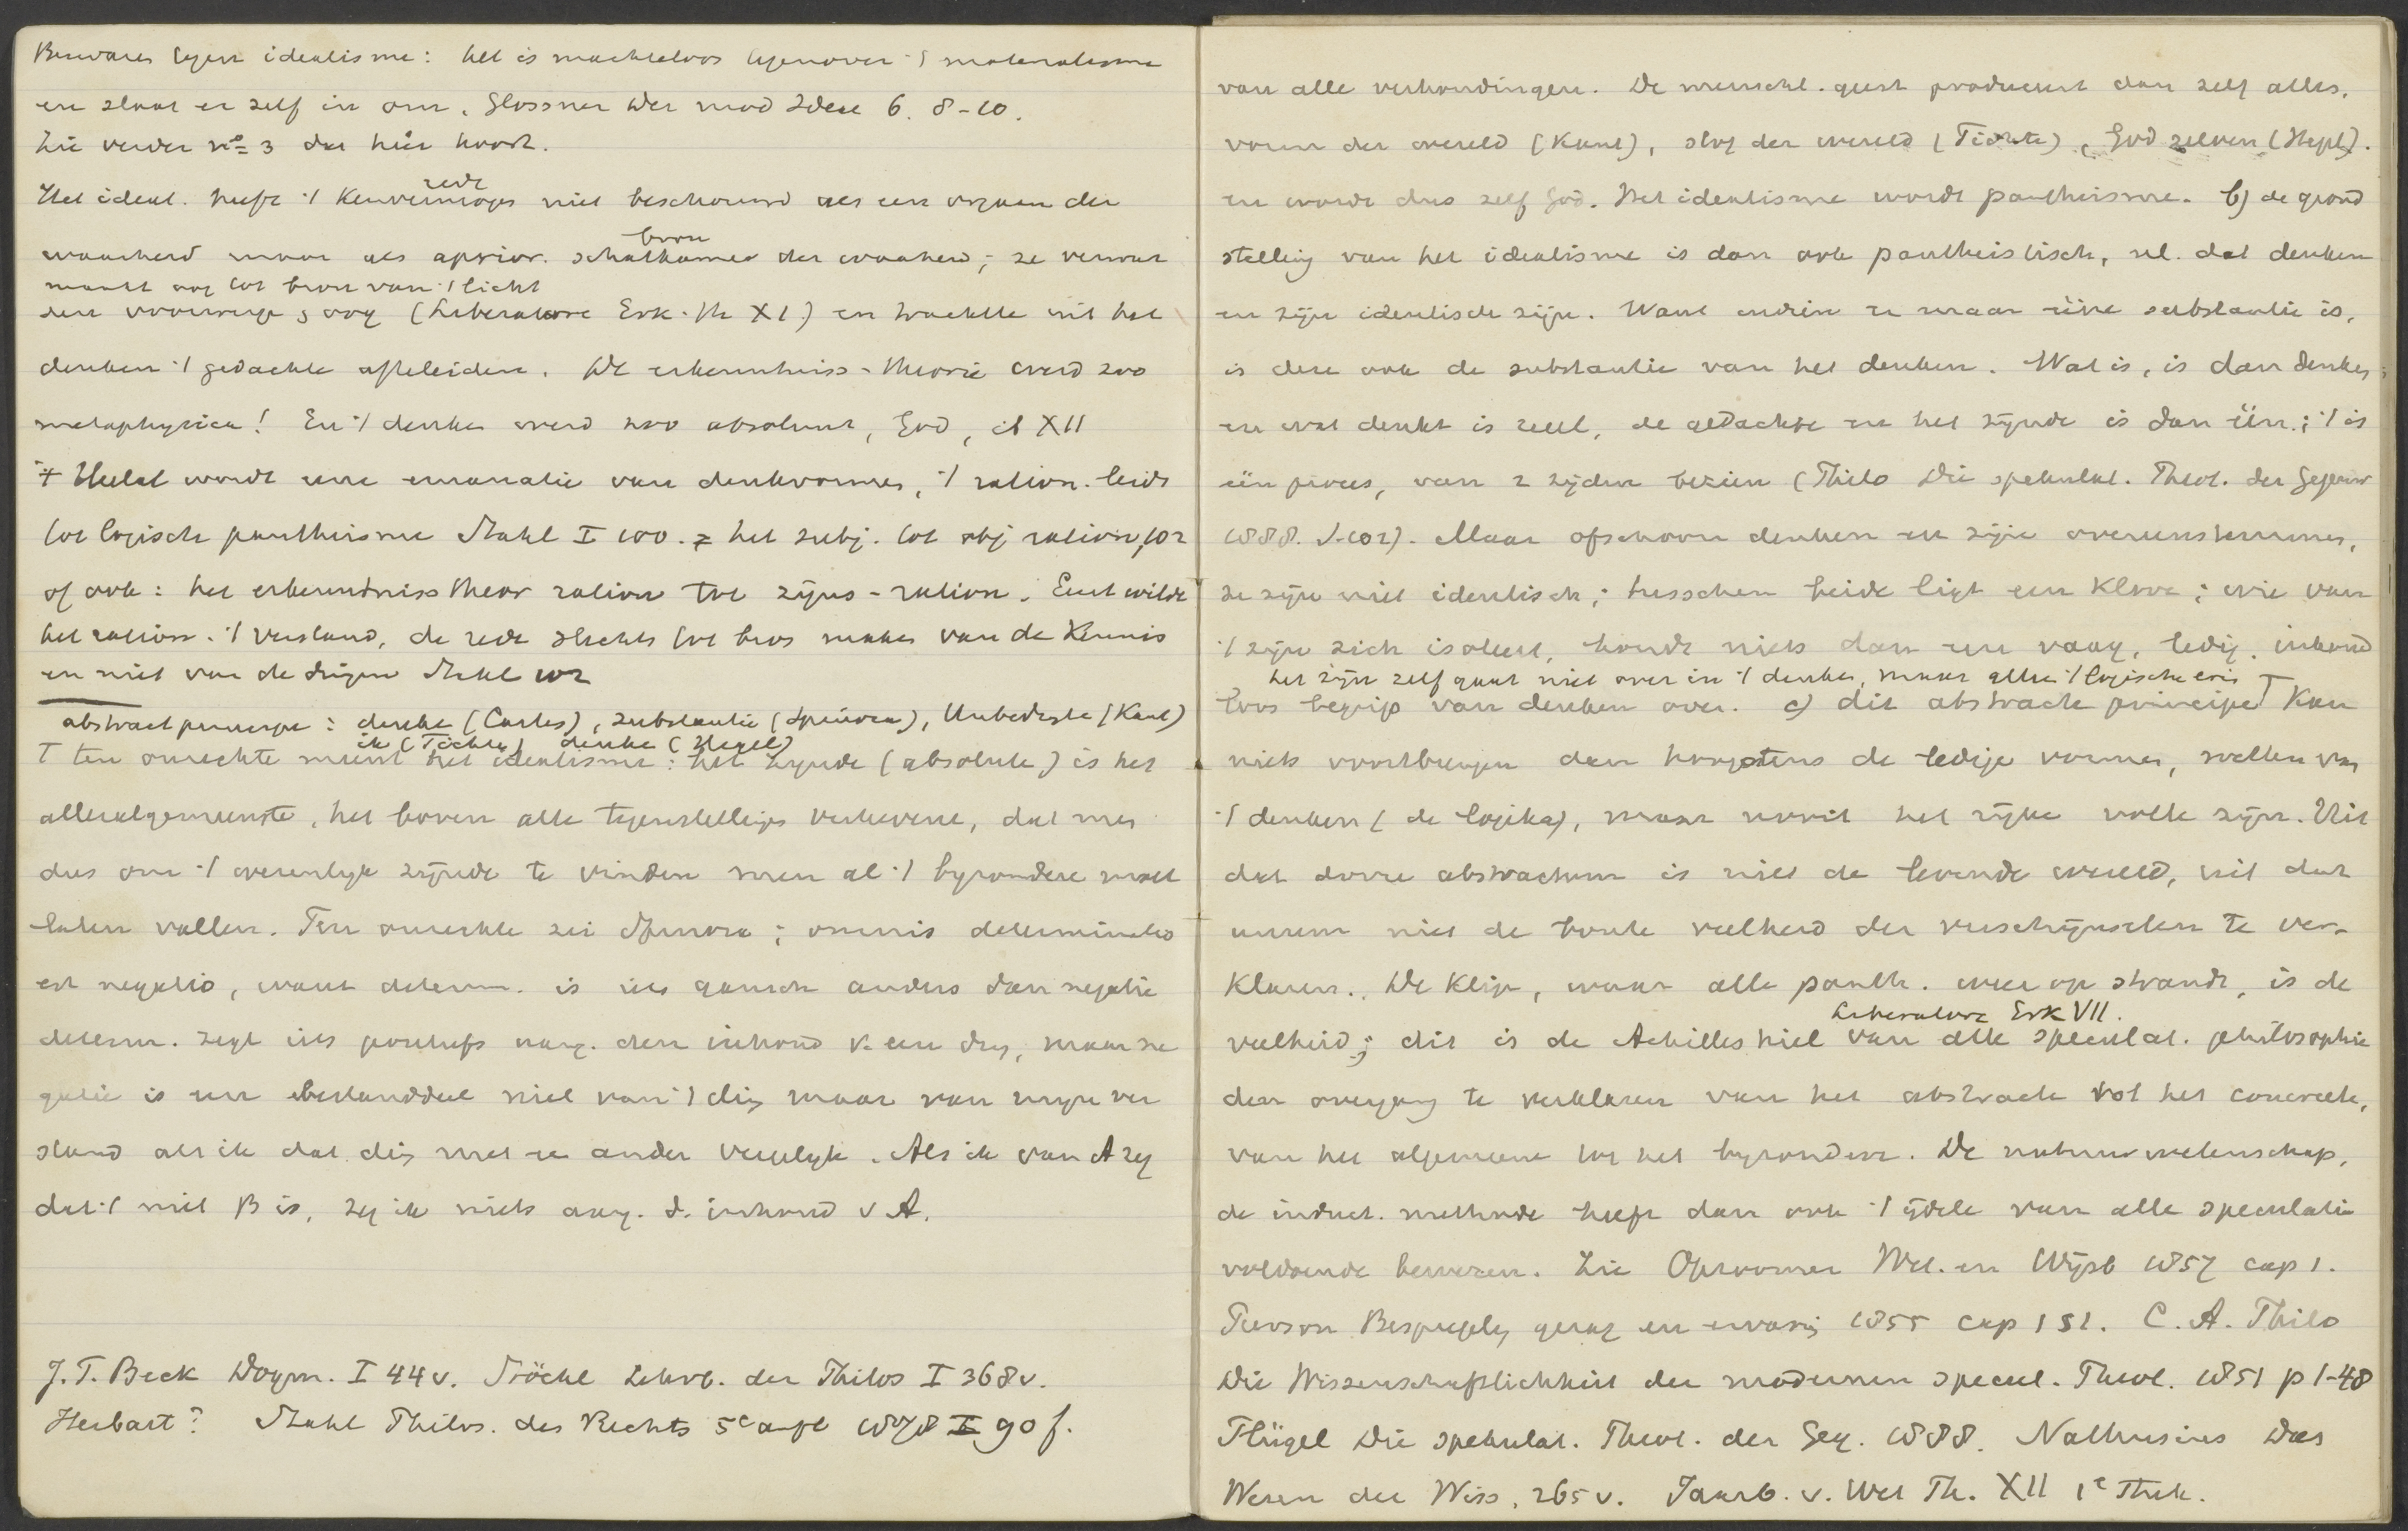 Bezwaren tegen idealisme: het is machteloos tegenover 't materialisme
en slaat er zelf in om. Glossner Der mod Idea 6. 8-10.
Zie verder no 3 dat hier hoort.
rede
Het ideal. heeft 't Kenvermogen niet beschouwd als een orgaan der
bron
waarheid maar als aprior. schatkamer der waarheid; ze verwar
maakt oog tot bron van 't licht
den oog (Liberatore Erk. Th XI) en trachtte uit het
denken 't gedachte afteleiden. De erkenntniss-theorie werd zoo
metaphysica! En 't denken werd zoo absoluut, God, ib XII
't Heelal wordt eene emanatie van denkvormen, 't ration. leidt
tot logische pantheisme Stahl I 100. = het subj. tot obj ration, 102
of ook: het erkenntniss theor ration tot zijns-ration. Eerst wilde
het ration. 't verstand, de rede slechts tot bron maken van de Kennis
en niet van de dingen Stahl 102
abstract principe: denke (Cartes), substantie (Spinoza), Unbedingte (Kant)
ik (Fichte) denke (Hegel)
T ten onrechte meent het idealisme: het zijnde (absolute) is het
alleralgemeenste, het boven alle tegenstellingen verhevene, dat men
dus om 't wezenlijk zijnde te vinden men al 't byzondere moet
laten vallen. Ten onrechte zei Spinoza: omnis determinatio
est negatio, want determ. is iets gansch anders dan negatie
determ. zegt iets positiefs aang. den inhoud v. een ding, maar ne
gatie is een bestanddeel niet van 't ding maar van mijn ver
stand als ik dat ding met een ander vergelijk. Als ik van A zeg
dat 't niet B is, zeg ik niets aang. d. inhoud v A.
J. T. Beck Dogm. I 44v. Stöckl Lehrb. der Philos I 368v.
Herbart? Stahl Philos. des Rechts 5e aufl 1878 I 90 f.
van alle verhoudingen. De menschl. geest produceert dan zelf alles,
vorm der wereld (Kant), stof der wereld (Fichte), God zelven (Hegel).
en wordt dus zelf God. Het idealisme wordt pantheisme. b) de grond
stelling van het idealisme is dan ook pantheistisch, nl. dat denken
en zijn identisch zijn. Want indien er maar ééne substantie is,
is deze ook de substantie van het denken. Wat is, is dan denken;
en wat denkt is reëel, de gedachte en het zijnde is dan één; 't is
één proces, van 2 zijden bezien (Thilo Die spekulat. Theol. der Gegenw
1888. 1-102). Maar ofschoon denken en zijn overeenstemmen,
ze zijn niet identisch; tusschen beide ligt een Klove; wie van
't zijn zich isoleert, houdt niets dan een vaag, ledig, inhoud
het zijn zelf gaat niet over in 't denken, maar alleen 't logische
loos begrip van denken over. c) dit abstracte principe T Kan
niets voortbrengen dan hoogstens de ledige vormen, wetten van
't denken (de logika), maar nooit het rijke volle zijn. Uit
dat dorre abstractum is niet de levende wereld, uit dat
unum niet de bonte veelheid der verschijnselen te ver-
klaren. De klip, waar alle panth. weer op strandt, is de
Liberatore Erk VII.
veelheid; dit is de Achilles hiel van alle speculat. philosophie
den overgang te verklaren van het abstracte tot het concrete,
van het algemeene tot het byzondere. De natuurwetenschap,
de induct. methode heeft dan ook 't ijdele van alle speculatie
voldoende bewezen. Zie Opzoomer Wet. en Wijsb 1857 cap 1.
Pierson Bespiegeling gezag en ervaring 1855 cap 1 §1. C. A. Thilo
Die Wissenschaftlichkeit der modernen specul. Theol. 1851 p 1-48
Flügel Die spekulat. Theol. der Geg. 1888. Nathusius Das
Wesen der Wiss. 265 v. Jaarb. v. Wet Th. XII 1e Stuk.